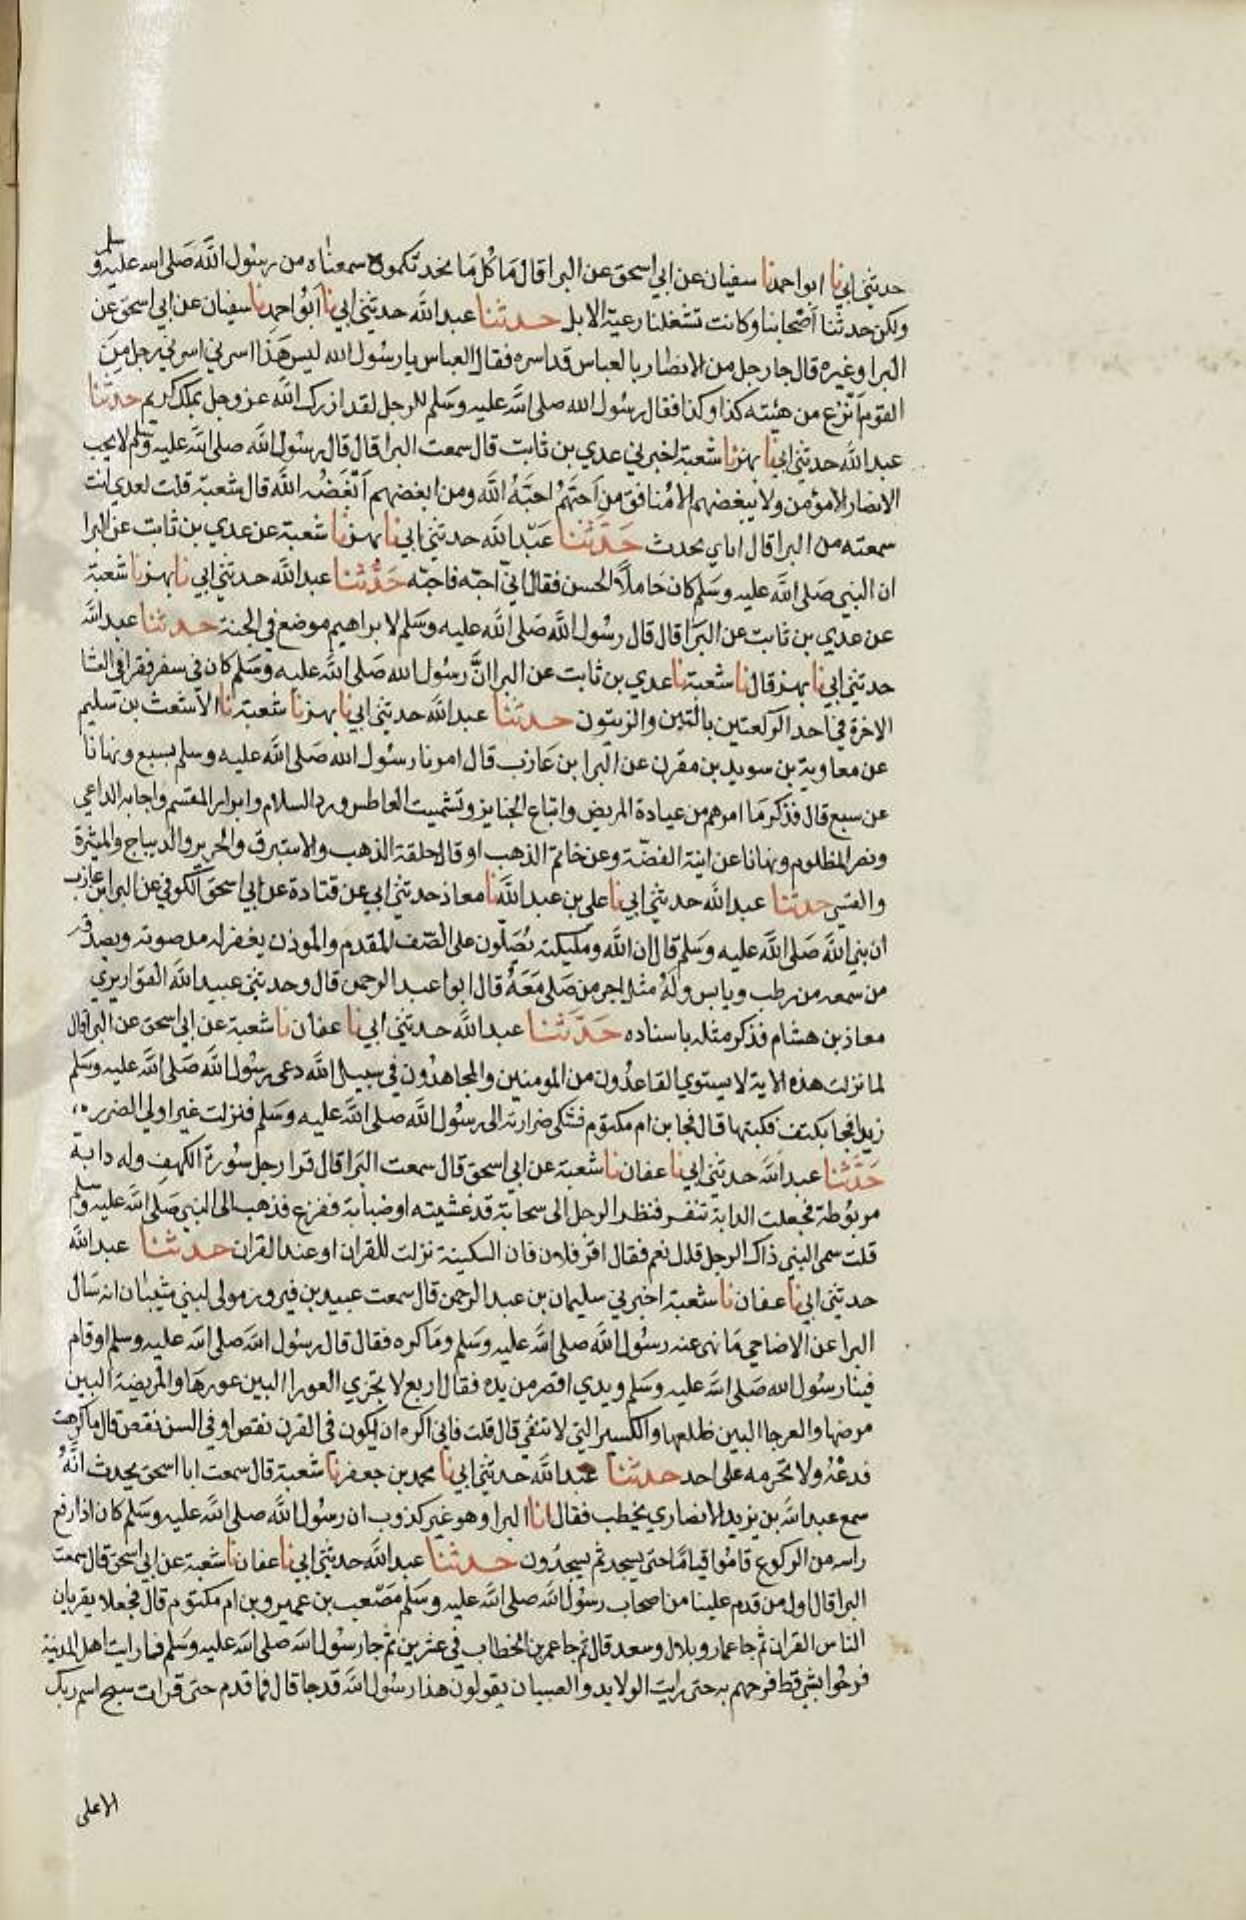 حدثني ابي نا ابو احمد نا سفيان عن ابي اسحق عن البرا قال مَا كُل مَا نحدثكموه سمعناه من رسول اللَّه صَلى الله عليه وسلم
ولكن حدثنا أصْحابنا وكانت تشغلنا رعية الابل حدثنا عبد اللَّه حدثني ابي نا أبو احمد نا سفيان عن ابي اسحق عن
البرا وغيره قال جا رجل من الانصار بالعباس قد اسره فقال العباس يا رسول الله ليس هَذا اسرني اسرني رجل من
القوم انزع من هيئته كذا وكذا فقال رسول الله صلى اللَّه عليه وسَلم للرجل لقد ازرك اللَّه عز وجل بملك كريم حدثنا
عبد اللَّه حدثني ابي نا بهز نا شعبة اخبرني عدي بن ثابت قال سمعت البرا قال قال رسول اللَّه صلى اللَّه عليه وسلم لا يحب
الانصار الا مؤمن ولا يبغضهم الا مُنافق من احبهُمْ احبَّهُ اللَّه ومن ابغضهم أَبْغَضُه اللَّه قال شعبة قلت لعدي انت
سمعته من البرا قال اياي يحدث حَدَّثنا عبد اللَّه حدثني ابي نا بهز نا شعبة عن عدي بن ثابت عن البرا
ان النبي صَلى اللَّه عليه وسَلم كان حَاملًا الحسن فقال اني احبه فاحبه حَدَّثنا عبد اللَّه حدثني ابي نا بهز نا شعبة
عن عدي بن ثابت عن البرَا قال قال رسُول اللَّه صَلى اللَّه عليه وسَلم لابراهيم موضع في الجنة حدثنا عبد اللَّه
حدثني ابي نا بهز قال نا شعبة نا عدي بن ثابت عن البرا انَّ رسول الله صَلى اللَّه عليه وسَلم كان في سفر فقرا في العشا
الاخرة في احد الركعتين بالتين والزيتون حدثنا عبد اللَّه حدثني ابي نا بهز نا شعبة نا الاشعث بن سليم
عن معاوية بن سويد بن مقرن عن البرا بن عَازب قال امرنا رسول الله صَلى اللَّه عليه وسلم بسبع ونهانا
عن سبع قال فذكر مَا امرهم من عيادة المريض واتباع الجنايز وتشميت العاطس ورد السلام وابرار المقسم واجابه الداعي
ونصر المظلوم ونهانا عن انية الفضة وعن خاتم الذهب او قال حلقة الذهب والاستبرق والحرير والديباج والميثرة
والقسي حدثنا عبد اللَّه حدثني ابي نا علي بن عبد اللَّه نا معاذ حدثني ابي عن قتادة عن ابي اسحق الكوفي عن البرا بن عازب
ان نبي اللَّه صَلى اللَّه عليه وسَلم قال ان اللَّه ومليكته يُصَلّون على الصَّف المقدم والموذن يغفر له مد صوته ويصدقه
من سمعه من رطب ويابس ولهُ مثل اجر من صَلى مَعَهُ قال ابوا عبد الرحمن قال وحدثني عبيد اللَّه القواريري
معاذ بن هشام فذكر مثله باسناده حَدَّثنا عبد اللَّه حدثني ابي نا عفان نا شعبة عن ابي اسحق عن البرا قال
لما نزلت هذه الاية لا يستوي القاعدُون من المومنين والمجاهدُون في سبيل اللَّه دعى رسُول اللَّه صَلى اللَّه عليه وسَلم
زيد فجا بكتف فكتبها قال فجا بن ام مكتوم فشكى ضرارته الى رسُول اللَّه صلى اللَّه عليه وسَلم فنزلت غير اولي الضرر ه
حَدَّثنا عبد اللَّه حدثني ابي نا عفان نا شعبة عن ابي اسحق قال سمعت البَرا قال قرا رجل سُورة الكهف وله دابة
مربُوطة فجعلت الدابة تنفر فنظر الرجل الى سحابة قد غشيته او ضبابة ففزع فذهب الى النبي صَلى اللَّه عليه وسلم
قلت سمى النبي ذاك الرجل قال نعم فقال اقر فلان فان السكينة نزلت للقران او عند القران حدثنا عبد اللَّه
حدثني ابي نا عفان نا شعبة اخبرني سليمان بن عبد الرحمن قال سمعت عبيد بن فيروز مولى لبني شيبان انه سَال
البرا عن الاضاحي مَا نهى عنه رسُول اللَّه صلى اللَّه عليه وسَلم ومَا كره فقال قال رسُول اللَّه صلى اللَّه عليه وسلم او قام
فينا رسُول الله صلى اللَّه عليه وسَلم ويدي اقصر من يده فقال اربع لا تجزي العورا البين عورهَا والمريضة البين
مرضها والعرجا البين ظلعها والكسير التي لا تنقي قال قلت فاني اكره ان يكون في القرن نقص او في السن نقص قال ما كرهت
فدعْهُ ولا تحرمه على احد حدثنا عبد اللَّه حدثني ابي نا محمد بن جعفر نا شعبة قال سمعت ابا اسحق يحدث انَّهُ
سمع عبد اللَّه بن يزيد الانصاري يخطب فقال انا البرا وهو غير كذوب ان رسُول اللَّه صلى اللَّه عليه وسَلم كان اذا رفع
راسه من الركوع قامُوا قيامًا حتى يسجد ثم يسجدُون حدثنا عبد اللَّه حدثني ابي نا عفان نا شعبة عن ابي اسحق قال سمعت
البرا قال اول من قدم علينا من اصحاب رسُول اللَّه صلى اللَّه عليه وسَلم مَصْعب بن عمير وبن ام مكتوم قال فجعلا يقريان
الناس القران ثم جا عمار وبلال وسعد قال ثم جا عمر بن الخطاب في عشرين ثم جا رسُول اللَّه صَلى اللَّه عليه وسَلم فما رايت اهل المدينة
فرحُوا بشي قط فرحهم به حتى رايت الولايد والصبيان يقولون هذا رسُول اللَّه قد جا قال فما قدم حتى قرات سبح اسم ربك
الاعلى